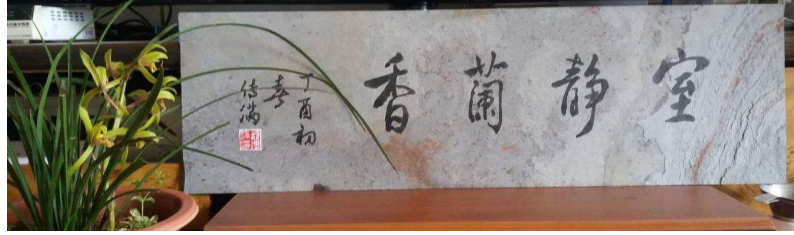 室静蘭香
丁酉初
春
传儒